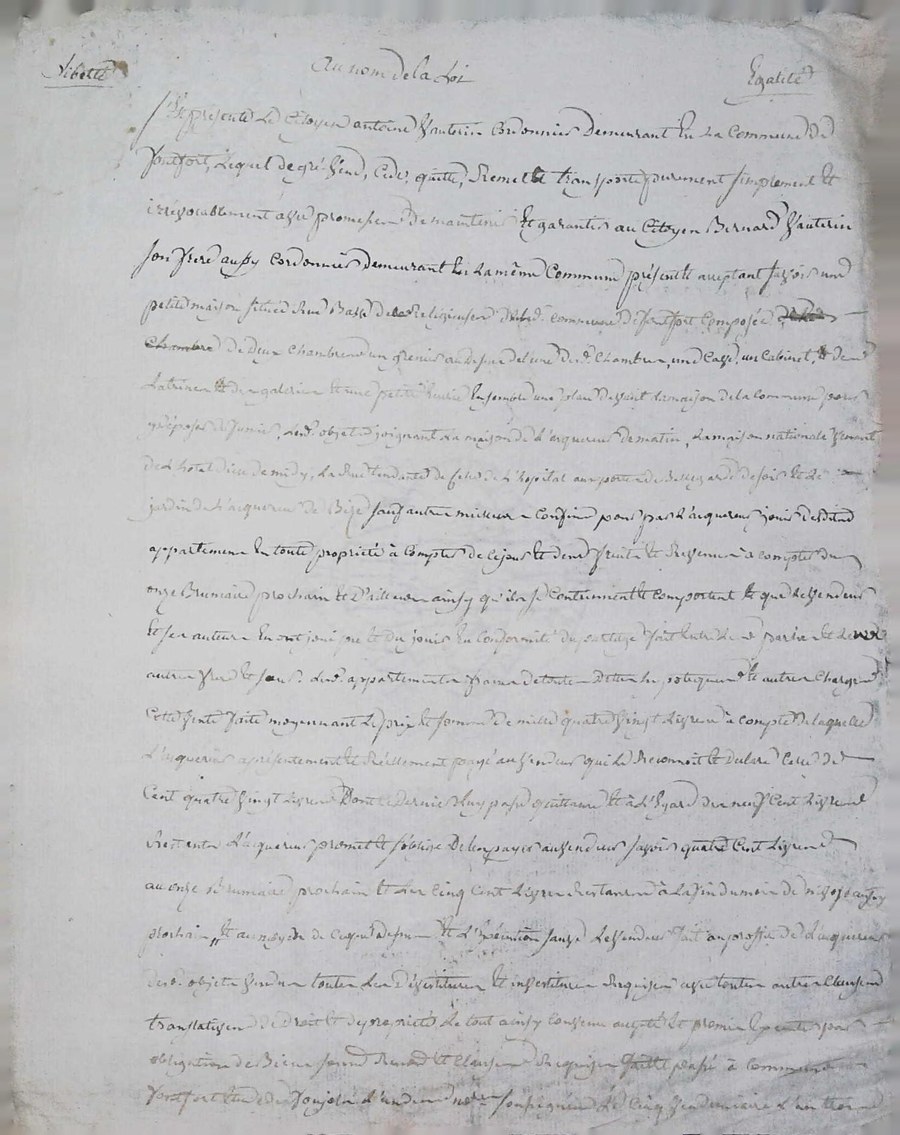 Liberté Au nom de la Loi Egalité
S'est présenté Le Citoyen antoine Vauterin Cordonnier Demeurant En La Commune de
Pontfort, Lequel de gré Vend, Cede, quitte, Remet et transporte purement simplement et
irrévocablement avec promesse de maintenir Et garantir au Citoyen Bernard Vauterin
son frere aussy Cordonnier Demeurant En La même Commune présent et acceptant savoir une
petite maison située Rue Basse des Religieuses dud. commune de Pontfort Composée
de Deux chambres un grenier au dessus de l'une desd. Chambres, une Cave, un Cabinet, et de
Latrines et de galeries et une petite Ensemble une place devant la maison de la Commune pour
y déposer du fumier, Lesd. objets joignant La maison de L'acquereur de matin, La maison nationale venant
de L'hotel dieu de midy, La Rue tendante de de L'hopital aux portes de Bellegarde de soir et Le
jardin de L'acquereur de Bize sauf autres meilleurs Confins pour par L'acquereur jouir desdits
appartements En toute propriété à Compter de ce jour et des fruits et Revenus à compter du
onze Brumaire prochain et D'ailleurs ainsy qu'ils se Contiennent et comportent et que Le Vendeur
Et ses auteurs En ont joui pu et du jouir En Conformité du partage fait entre Les parties et Leurs
autres freres et sœurs. Lesd. appartements francs de toutes Dettes hipoteques et autres Charges
Cette Vente faite moyennant Le prix et somme de mille quatre Vingt Livres à compte de laquelle
L'acquereur a présentement et Réellement payé au Vendeur qui Le Reconnoit et declare Celle de
Cent quatre Vingt Livres Dont ce dernier Luy passe quittance Et à L'Egard des neuf Cent Livres
Restantes L'acquereur promet et s'oblige De les payer au Vendeur savoir quatre Cent Livres
au onze Brumaire prochain Et Les Cinq Cent Livres Restantes à La fin du mois de aussy
prochain, Et au moyen de ce que dessus Et L'exécution sauve Le Vendeur fait au proffit de L'acquereur
desd. objets Vendus toutes Les dévestitures et investitures Requises avec toutes autres Clauses
translatives de Droit et de propriété Le tout ainsy Convenu accepté et promis par
obligation de Biens Renon et Clauses Requises fait et passé à Commune
Pontfort Etude de soussigné Le Cinq Vendemiaire L'an